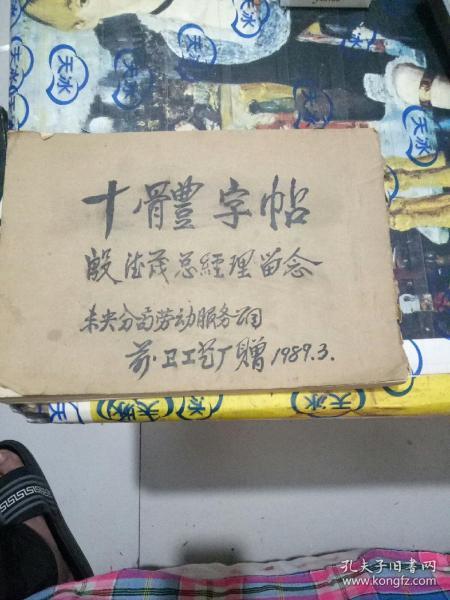 十體字帖
殷德茂总經理留念
未央分局劳动服务公司
前卫工艺厂贈1989.3.
天冰
天冰
天冰
天冰
天冰
天冰
天冰
孔夫子旧书网
www.kongfz.com